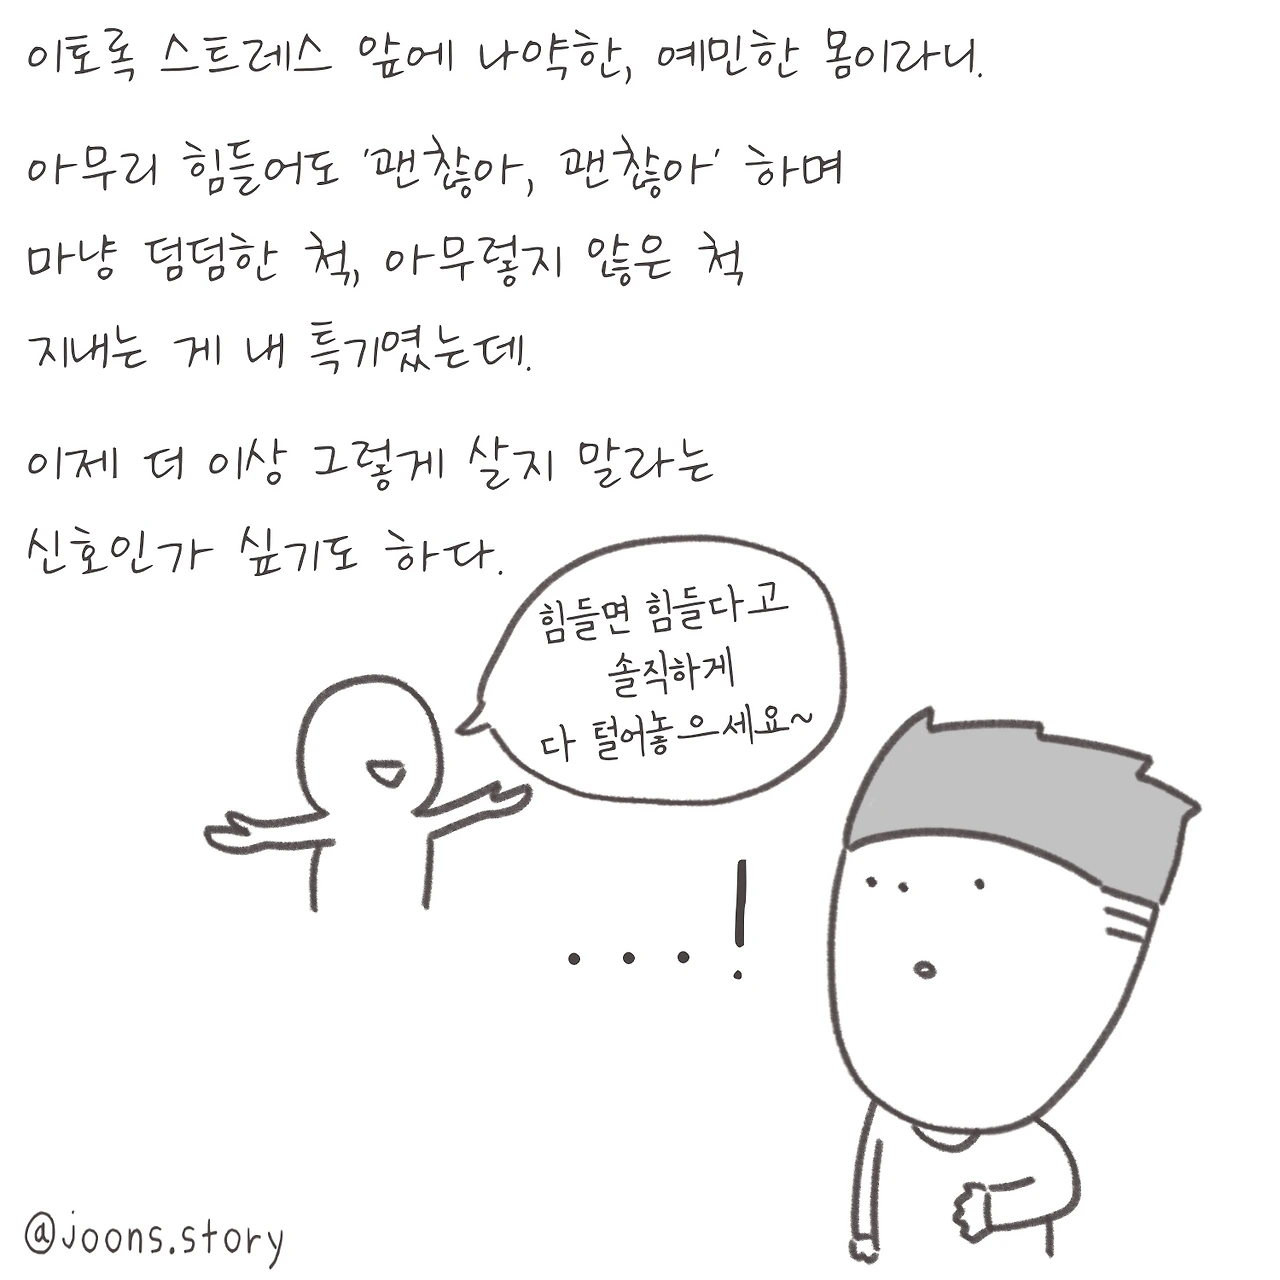 이토록 스트레스 앞에 나약한, 예민한 몸이라니.
아무리 힘들어도 '괜찮아, 괜찮아' 하며
마냥 덤덤한 척, 아무렇지 않은 척
지내는 게 내 특기였는데.
이제 더 이상 그렇게 살지 말라는
신호인가 싶기도 하다.
힘들면 힘들다고
솔직하게
다 털어놓으세요~
...!
@joons.story